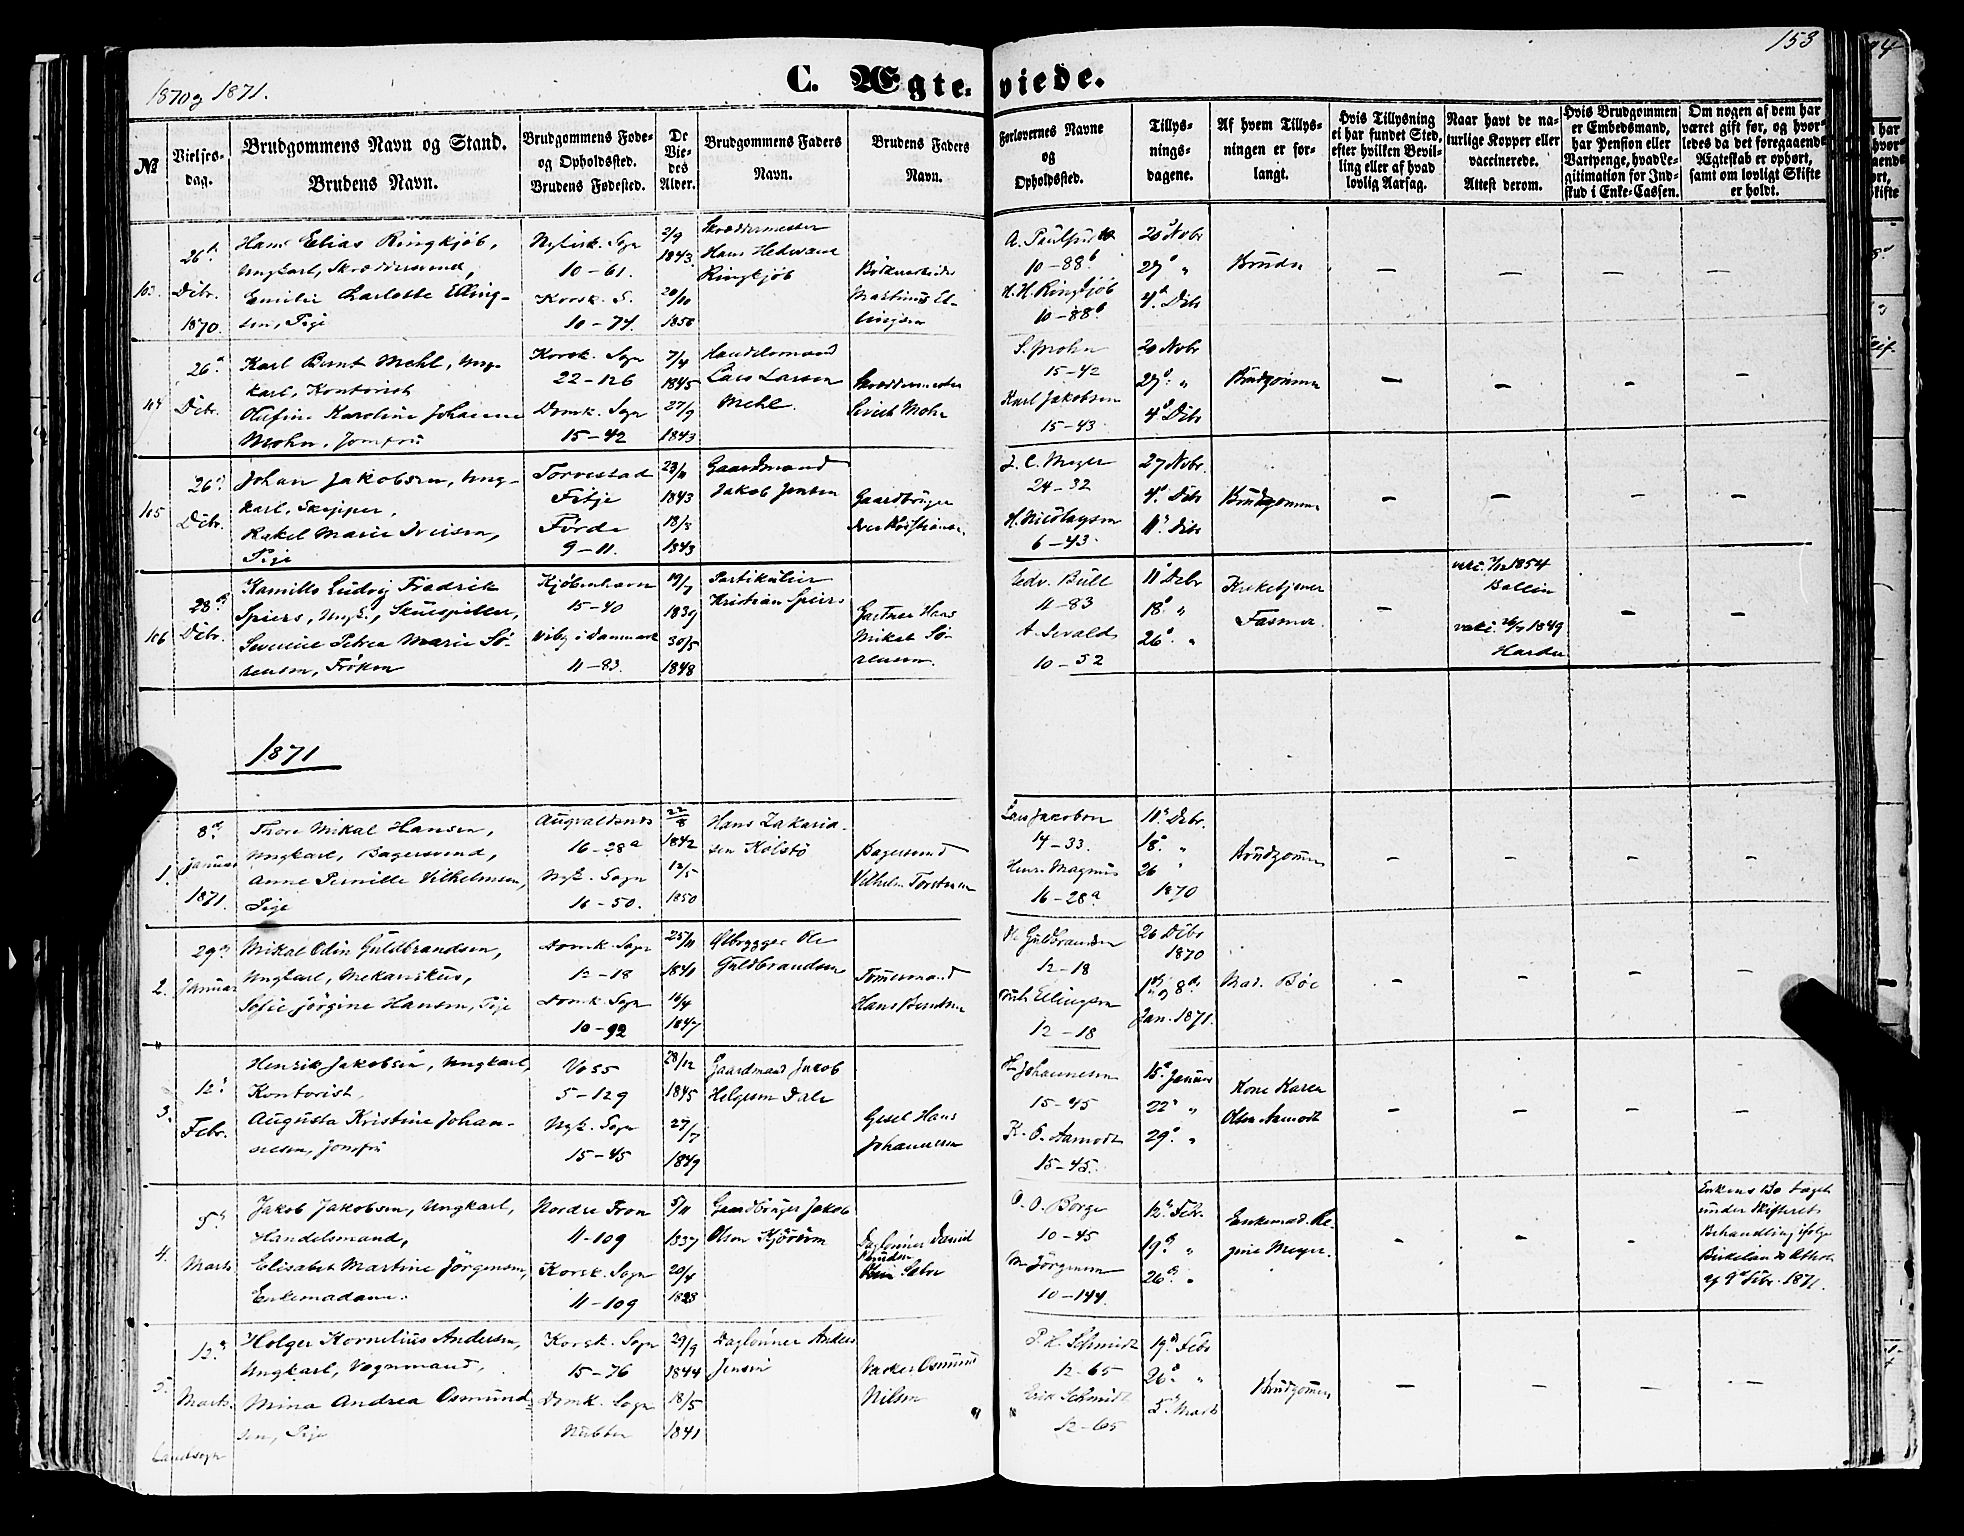 1870 og 1871.
C. Ægteviede.
153
№
Vielses-
dag.
Brudgommens Navn og Stand.
Brudens Navn.
Brudgommens Føde-
og Opholdssted.
Brudens Fødested.
De
Vie-
des
Alder.
Brudgommens Faders
Navn.
Brudens Faders
Navn.
Forlovernes Navne
og
Opholdssted.
Tillys-
nings-
dagene.
Af hvem Tillys-
ningen er for-
langt.
Hvis Tillysning
ei har fundet Sted,
efter hvilken Bevil-
ling eller af hvad
lovlig Aarsag.
Naar havt de na-
turlige Kopper eller
vaccinerede.
Attest derom.
Hvis Brudgommen
er Embedsmand,
har Pension eller
Vartpenge, hvad Le-
gitimation for Ind-
skud i Enke-Cassen.
Om nogen af dem har
været gift før, og hvor-
ledes da det foregaaende
Ægteskab er ophørt,
samt om lovligt Skifte
er holdt.
26d
Dcbr.
1870.
Hans Elias Ringkjöb,
Ungkarl, Skræddersvend,
Emilie Charlotte Elling-
sen, Pige
Nykirk. Sogn
10-61.
Korsk. S.
10-74.
2/9
1843.
20/10
1850
Skræddermester
Hans
Ringkjöb
Martinus El-
lingsen
10-88b
H. H. Ringkjöb
10-88b
20 Novbr
27d "
4d Dcbr
Bruden
— — — —
104
26d
Dcbr.
Karl Bernt Mehl, Ung-
karl, Kontorist
Olufine Karoline Johanne
Mohn, Jomfru
Korsk. Sogn
22-126
Domk. Sogn
15-42
7/4
1845
27/9
1843
Handelsmand
Lars Larsen
Mehl.
Skræddermester
Sivert Mohn
S. Mohn
15-42
Karl Jakobsen
15-43
20 Novbr
27d "
4d Dcbr
Brudgommen
— — — —
105
26d
Dcbr.
Johan Jakobsen, Ung-
karl, Skipper,
Rakel Marie Iversen,
Pige
Torvestad
Fitje
Förde
9-11.
23/11
1843
18/3
1843
Gaardmand
Jakob Jensen
Gaardbruger
Iver Kristiansen
J. C. Meyer
24-32
H. Nicolaysen
6-43
27 Novbr.
4d Dcbr
11d Dcbr
Brudgommen
— — — —
106
28d
Dcbr.
Kamillo Ludvig Fredrik
Spiers, Ungk., Skuespiller,
Severine Petrea Marie Sö-
rensen, Fröken
Kjöbenhavn
15-40
Viby i Danmark
11-83.
19/7
1839
30/5
1848
Partikulier
Kristian Spiers
Gartner Hans
Mikal Sö-
rensen.
Edv. Bull
11-83
10-52
11d Dcbr
18d "
26d "
Kirketjener
Fasmer.
—
1854
Ballin
vacc. 1849
Harder
— —
1871
1.
8d
Januar
1871.
Thore Mikal Hansen,
Ungkarl, Bagersvend,
Anne Pernille Vilhelmsen,
Pige
Augvaldsnes
16-28a
Nyk. Sogn
16-50.
22/8
1842
12/5
1850
Hans Zakaria-
sen Kolstö
Bagersvend
Vilhelm Torstensen
Lars Jacobsen
14-33.
Henr. Magnus
16-28a
11d Dcbr.
18d "
26 "
1870
Brudgommen
— — — —
2.
29d
Januar
Mikal Odin Guldbrandsen,
Ungkarl, Mekanikus,
Sofie Jörgine Hansen, Pige
Domk. Sogn
12-18
Domk. Sogn
10-92
25/11
1841
16/4
1847
Ölbrygger Ole
Guldbrandsen
Tömmermand
Hans Bendtsen
Guldbrandsen
12-18
Ellingsen
12-18
26 Dcbr
1870
1d og 8d
Jan. 1871.
Mad. Böe
— — — —
3.
12d
Febr.
Henrik Jakobsen, Ungkarl,
Kontorist,
Augusta Kristine Johan-
nesen, Jomfru
Voss
5-129
Nyk. Sogn
15-45
28/12
1845
27/7
1849
Gaardmand Jacob
Helgesen Dale
Gesel Hans
Johannesen
H. Johannesen
15-45
K. O. Aamodt
15-45.
15d Januar
22d "
29d "
Kone Karen
Olsen Aamodt
— — — —
4.
5d
Marts
Jakob Jakobsen, Ungkarl,
Handelsmand,
Elisabet Martine Jörgensen,
Enkemadame.
Nordre Fron
11-109
Korsk. Sogn
11-109
5/11
1837
20/4
1828
Gaardbruger Jakob
Olsen
Daglönner David
Knudsen
O. O. Borge
10-45
M. Jörgensen
10-144.
12d Febr.
19d "
26d "
Enkemad. Re-
gine Meyer.
— — —
Enkens Bo taget
under Skifterets
Behandling ifölge
af 9d Febr. 1871.
5.
12d
Marts.
Landsogn
Holger Kornelius Andersen,
Ungkarl, Vognmand,
Mina Andrea Osmund-
sen, Pige
Korsk. Sogn
15-76
Domk. Sogn
Nubben
29/9
1844
18/5
1841
Daglönner Anders
Jensen
Vægter Osmund
Nilsen
P. H. Schmidt
12-65
Erik Schmidt
12-65
19d Febr
26d "
5d Marts
Brudgommen
— — — —